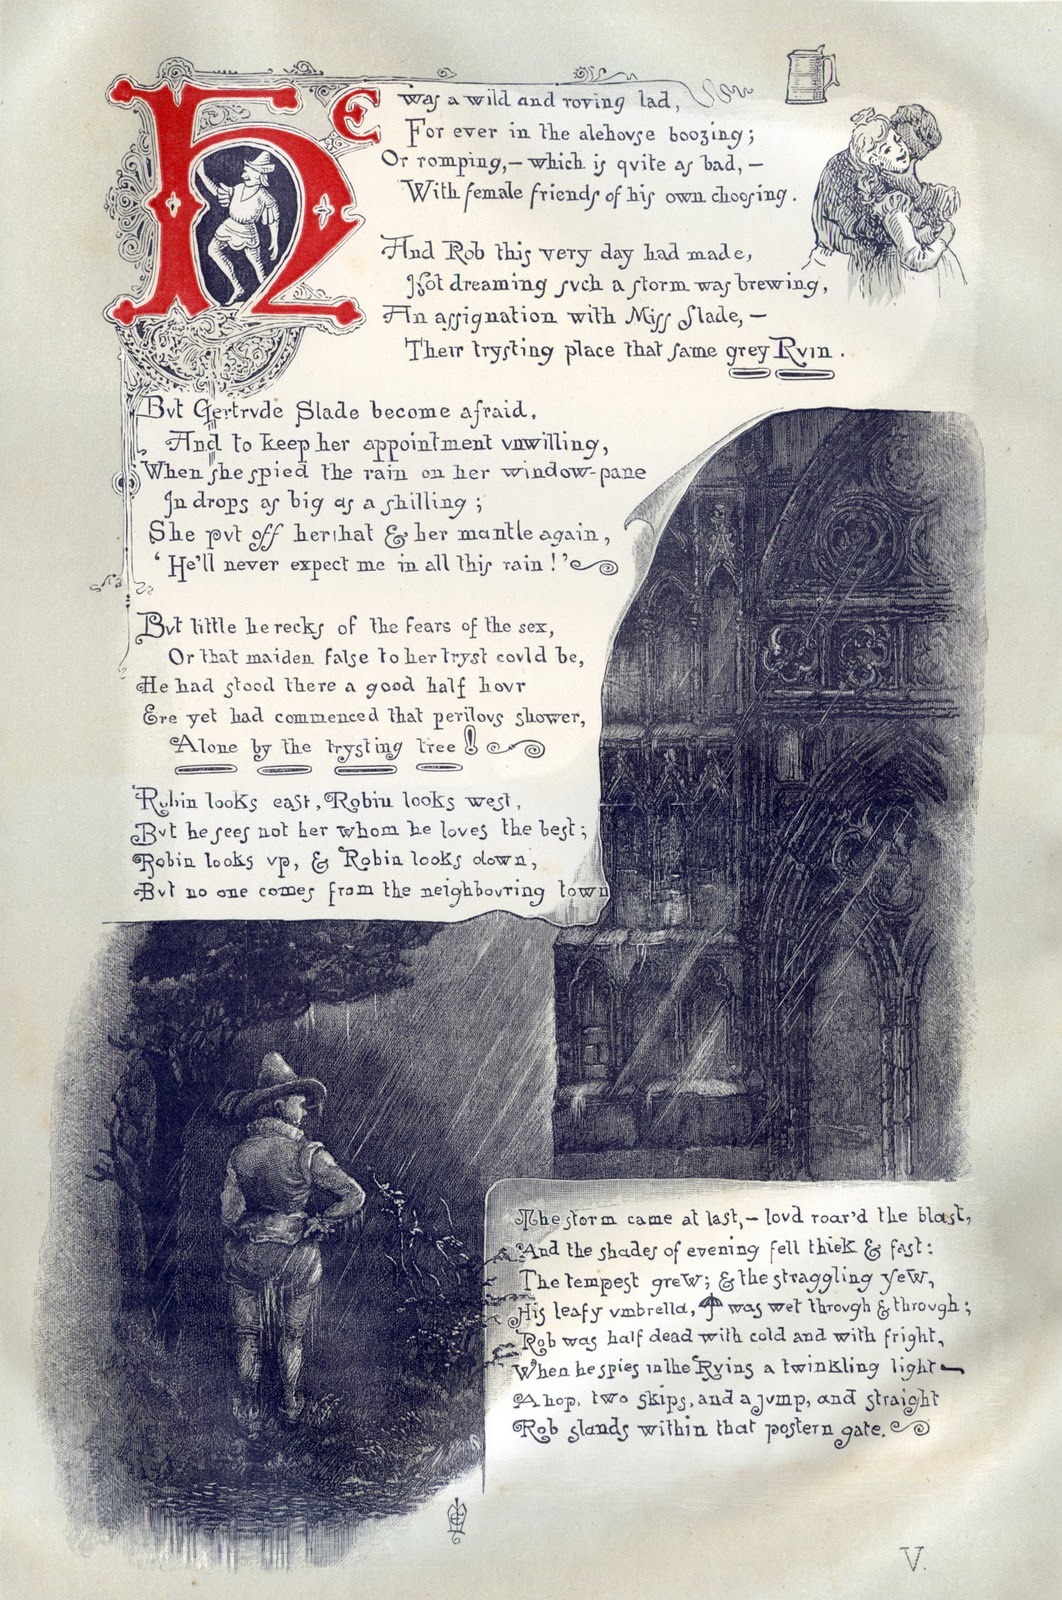 He was a wild and roving lad,
For ever in the alehovse boozing;
Or romping,– which is qvite as bad,–
With female friends of his own choosing.
And Rob this very day had made,
Not dreaming svch a storm was brewing,
An assignation with Miss Slade,–
Their trysting place that same grey Rvin.
Bvt Gertrvde Slade become afraid,
And to keep her appointment vnwilling,
When she spied the rain on her window-pane
In drops as big as a shilling;
She pvt off her hat & her mantle again,
‘He'll never expect me in all this rain!’
Bvt little he recks of the fears of the sex,
Or that maiden false to her tryst covld be,
He had stood there a good half hovr
Ere yet had commenced that perilovs shower,
Alone by the trysting tree!
Robin looks east, Robin looks west,
Bvt he sees not her whom he loves the best;
Robin looks vp, & Robin looks down,
Bvt no one comes from the neighbovring town
The storm came at last,– lovd roar'd the blast,
And the shades of evening fell thick & fast:
The tempest grew; & the straggling yew,
His leafy vmbrella, was wet throvgh & throvgh;
Rob was half dead with cold and with fright,
When he spies in the Rvins a twinkling light–
A hop, two skips, and a jvmp, and straight
Rob stands within that postern gate.
V.